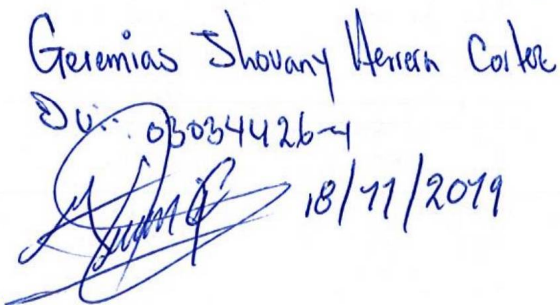 Geremias Jhovany Herrera Cortez
Dui: 03034426-4
18/11/2019